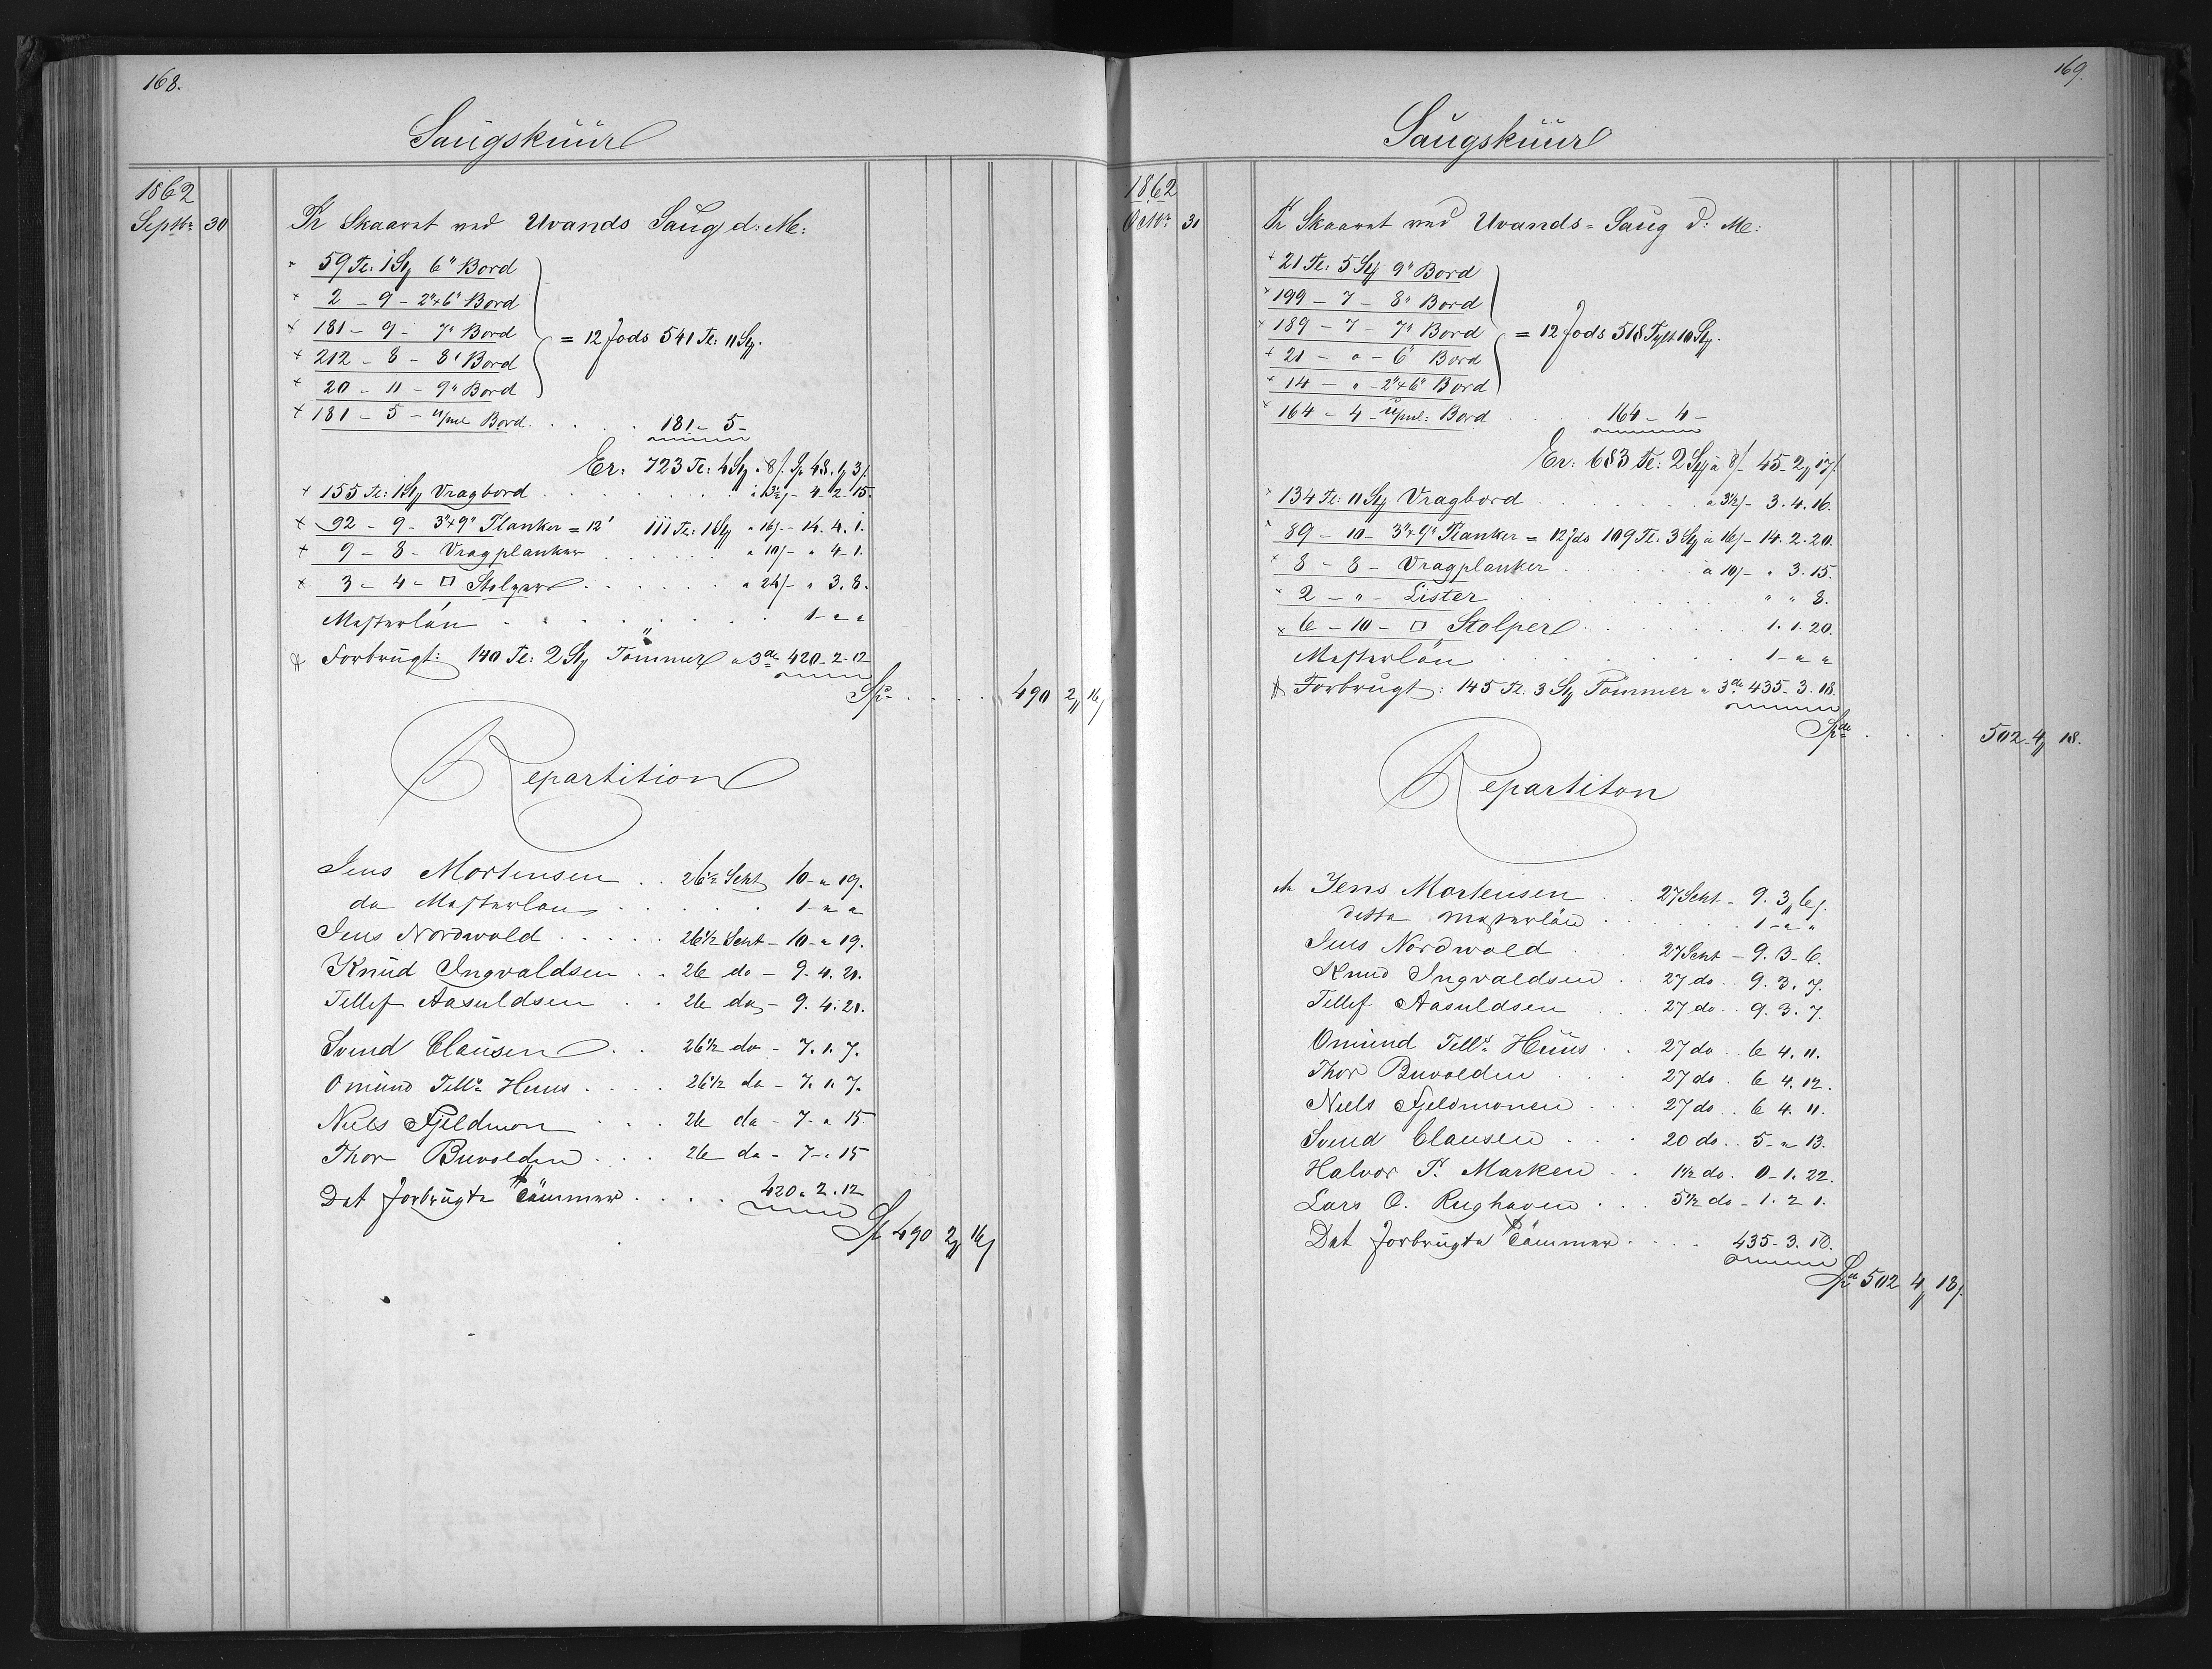 168.
Saugskuur
1862
Septbr 30 Pr Skaaret ved Uvands Saug d: M:
+ 59 Tr: 1 St 6" Bord
+ 2 - 9 - 2"+6" Bord
+ 181 - 9 - 7" Bord = 12 fods 541 Tr: 11 St.
+ 212 - 8 - 8" Bord
+ 20 - 11 - 9" Bord
+ 181 - 5 - u/ml Bord . . . . 181 - 5 -
Er: 723 Tr: 4 St a 8/. Sp 48. 1, 3/.
+ 155 Tr: 1 St Vragbord . . . . a 3½/- 4-2-15.
+ 92 - 9 - 3"+9" Planker = 12' 111 Tr: 1 St a 16/- 14. 4. 1.
+ 9 - 8 - Vragplanker . . . . a 10/- " 4-1.
+ 3 - 4 - □ Stolper . . . . a 24/- " 3. 8.
Mesterlön . . . . 1 - " "
# Forbrugt: 140 Tr: 2 St Tömmer a 3de 420-2-12
Spd . . . . 490 2, 16/
Repartition
Jens Mortensen . . 26½ Skt 10 - " 19.
do Mesterlön . . . . 1 - " "
Jens Nordwold . . . . 26½ Skt - 10 - " 19.
Knud Ingvaldsen . . 26 do - 9. 4. 20.
Tellef Aasuldsen . . 26 do - 9. 4. 20.
Svend Clausen . . 26½ do - 7. 1. 7.
Omund Tells Huus . . . . 26½ do - 7. 1. 7.
Niels Fjeldmon . . . 26 do - 7. " 15
Thor Buvolden . . . 26 do - 7 - " 15
Det forbrugte Tömmer . . . . 420 " 2. 12
Sp 490 2, 16/
169.
Saugskuur
1862
Octbr 31 Pr Skaaret ved Uvands-Saug d: M:
+ 21 Tr: 5 St 9" Bord
+ 199 - 7 - 8" Bord
+ 189 - 7 - 7" Bord = 12 fods 518 Tylt 10 St.
+ 21 - " - 6" Bord
+ 14 - " - 2"+6" Bord
+ 164 - 4 - u/ml: Bord . . . 164 - 4 -
Er: 683 Tr: 2 St a 8/- 45-2, 17/.
+ 134 Tr: 11 St Vragbord . . . . a 3½/- 3. 4. 16.
+ 89 - 10 - 3"+9" Planker = 12 fds 109 Tr. 3 St a 16/- 14. 2. 20.
+ 8 - 8 - Vragplanker . . . . a 10/- " 3. 15.
+ 2 - " - Lister . . . . " " 8.
+ 6 - 10 - □ Stolper . . . . 1. 1. 20.
Mesterlön . . . . 1 - " "
# Forbrugt: 145 Tr. 3 St Tömmer a 3de 435-3. 18.
Spd . . . 502-4, 18.
Repartiton
Jens Mortensen . . 27 Skt - 9. 3, 6/.
ditto Mesterlön . . . . 1 - " "
Jens Nordwold . . 27 Skt - 9. 3 - 6.
Knud Ingvaldsen . . 27 do . . 9. 3. 7.
Tellef Aasuldsen . . . 27 do . . 9. 3. 7.
Omund Tells Huus . . 27 do . . 6 4. 11.
Thor Buvolden . . . 27 do . 6 4. 12.
Niels Fjeldmonen . . . 27 do . . 6 4. 11.
Svend Clausen . . . 20 do . . 5 - " 13.
Halvor P. Marken . . 1½ do . 0 - 1. 22.
Lars O. Rughaven . . . 5½ do - 1. 2 1.
Det forbrugte Tömmer . . . . 435-3. 18.
Spd 502 4, 18/.